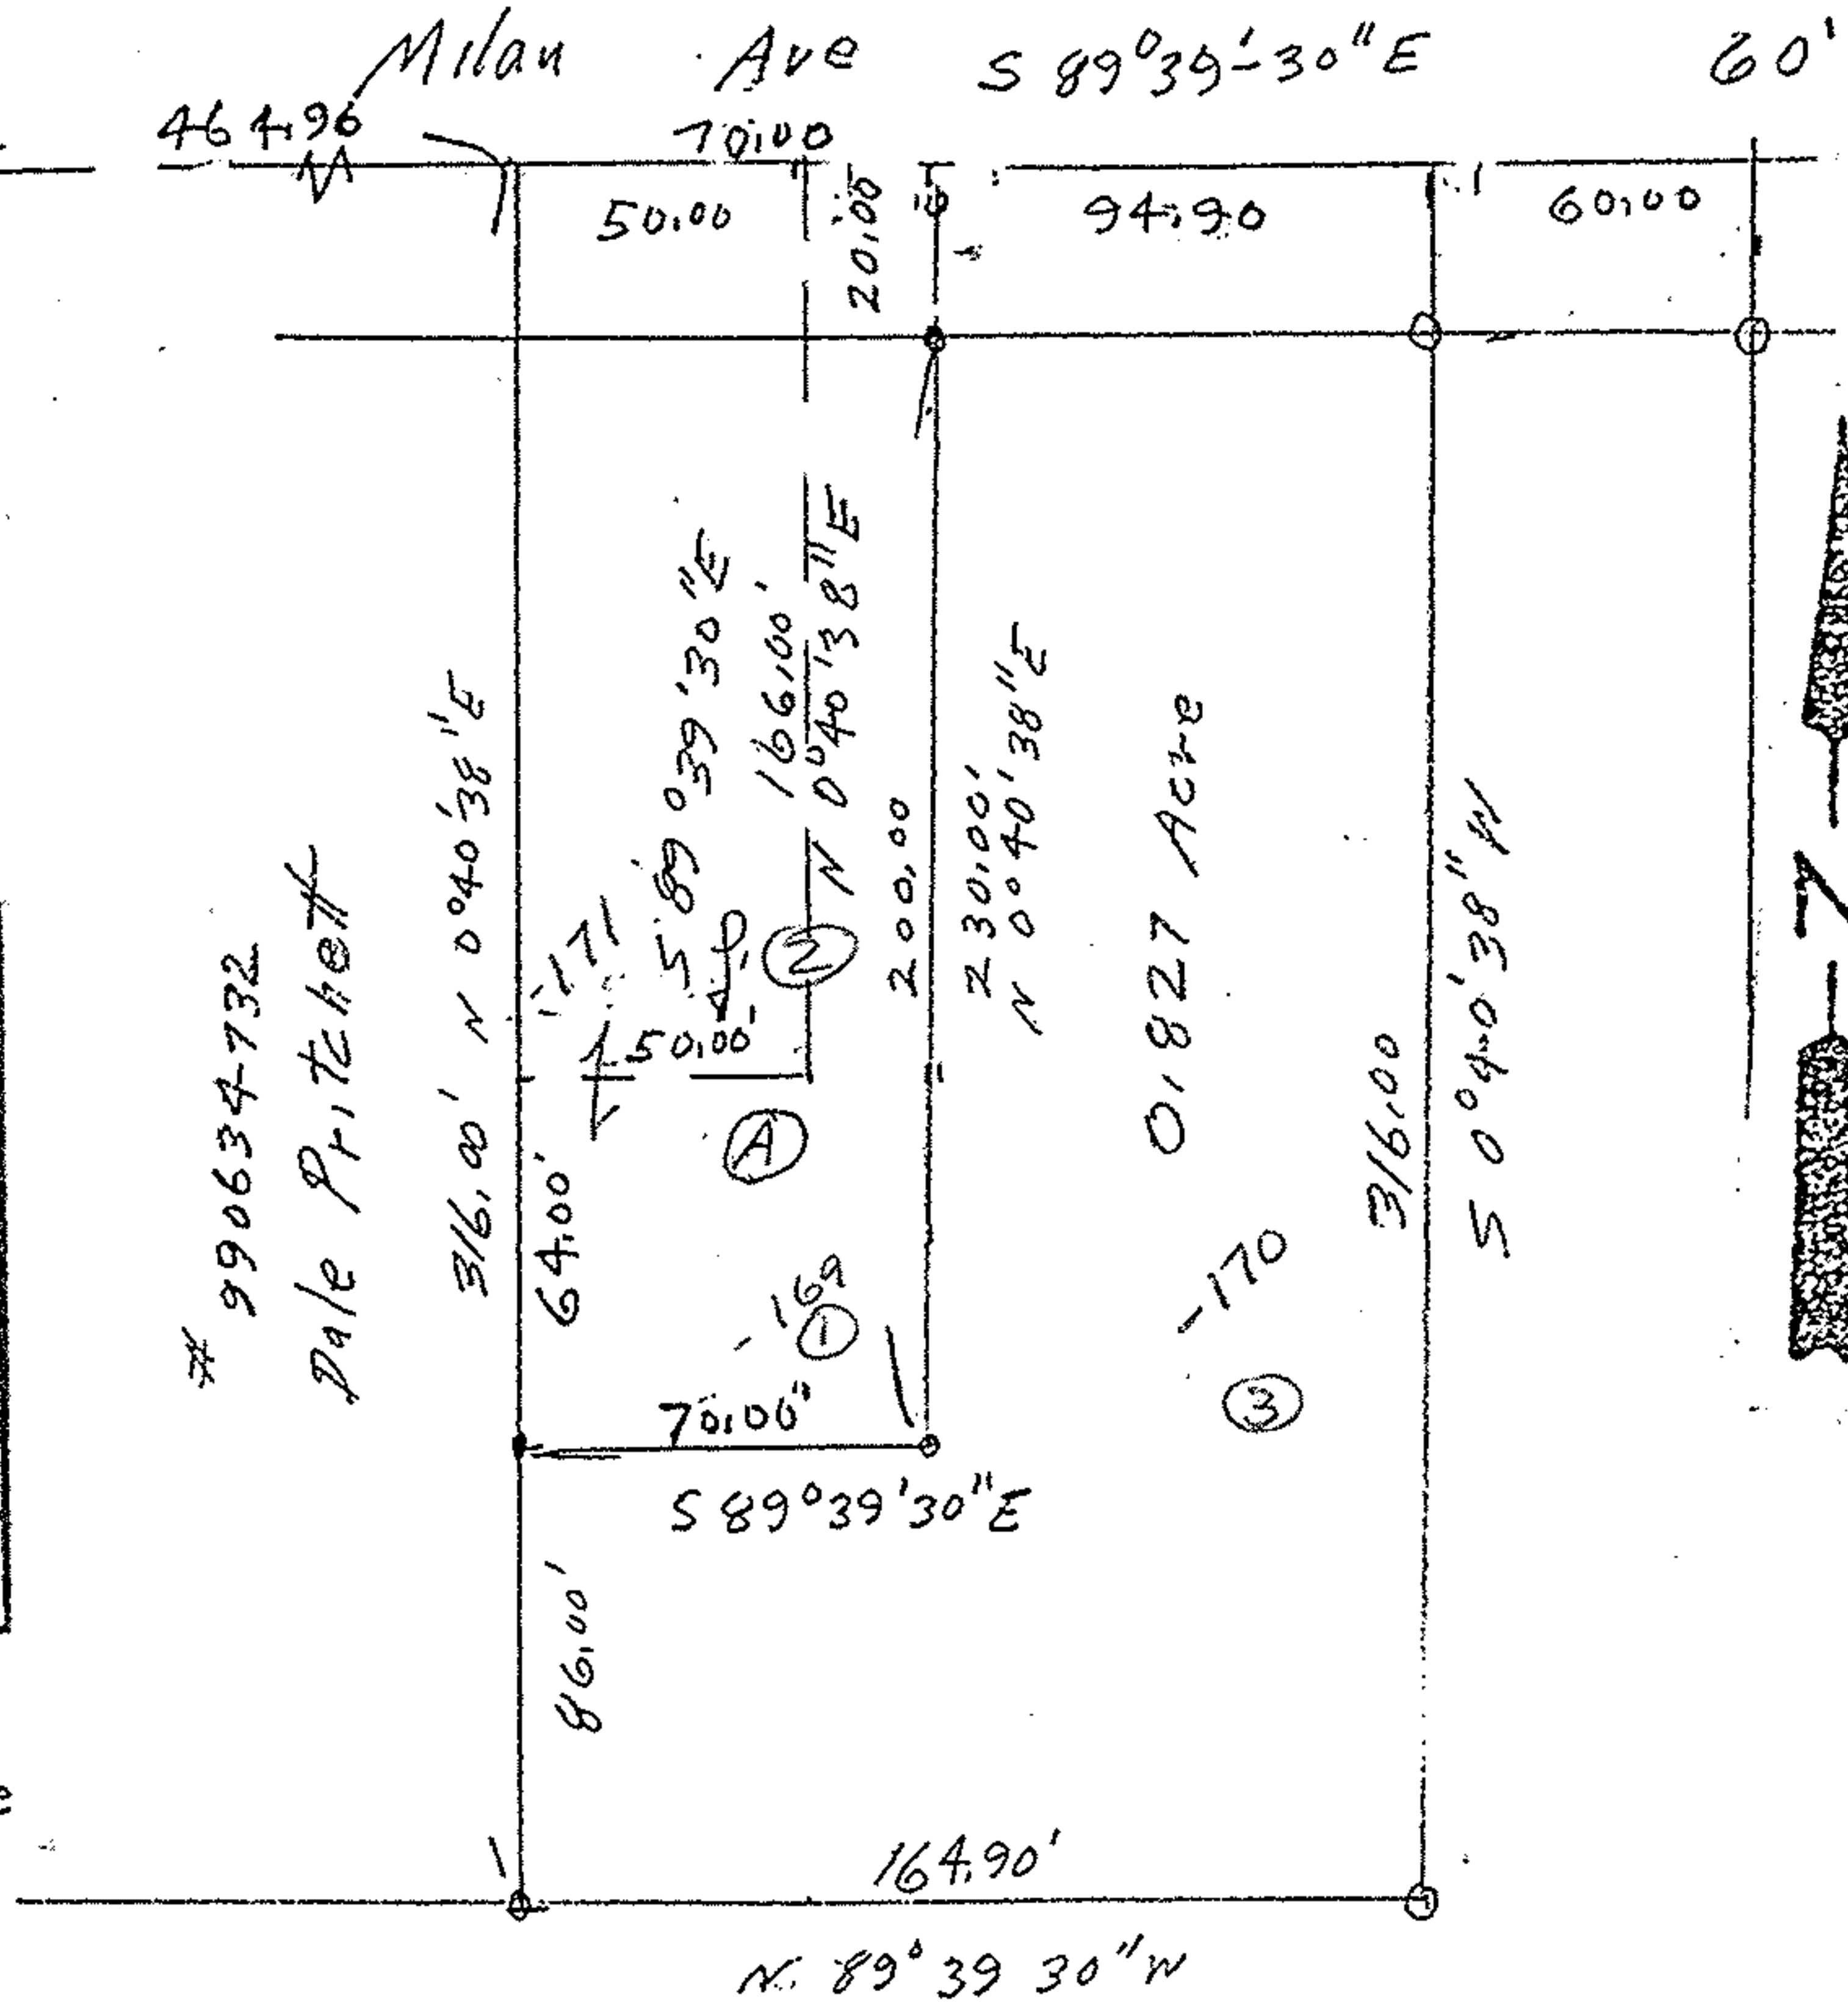 Milan Ave S 89°39'-30"E 60'
464.96
70.00
50.00
20.00
94.90
60.00
# 990634-732
Dale Pritchett
316.00' N 0°40'38"E
-171
S 89°39'30"E
166.00'
N 0°40'38"E
2
50.00'
200.00
230.00'
N 0°40'38"E
0.827 Acre
316.00
S 0°40'38"W
A
64.00'
-169
1
-170
3
70.00'
S 89°39'30"E
86.00'
164.90'
N. 89°39 30"W